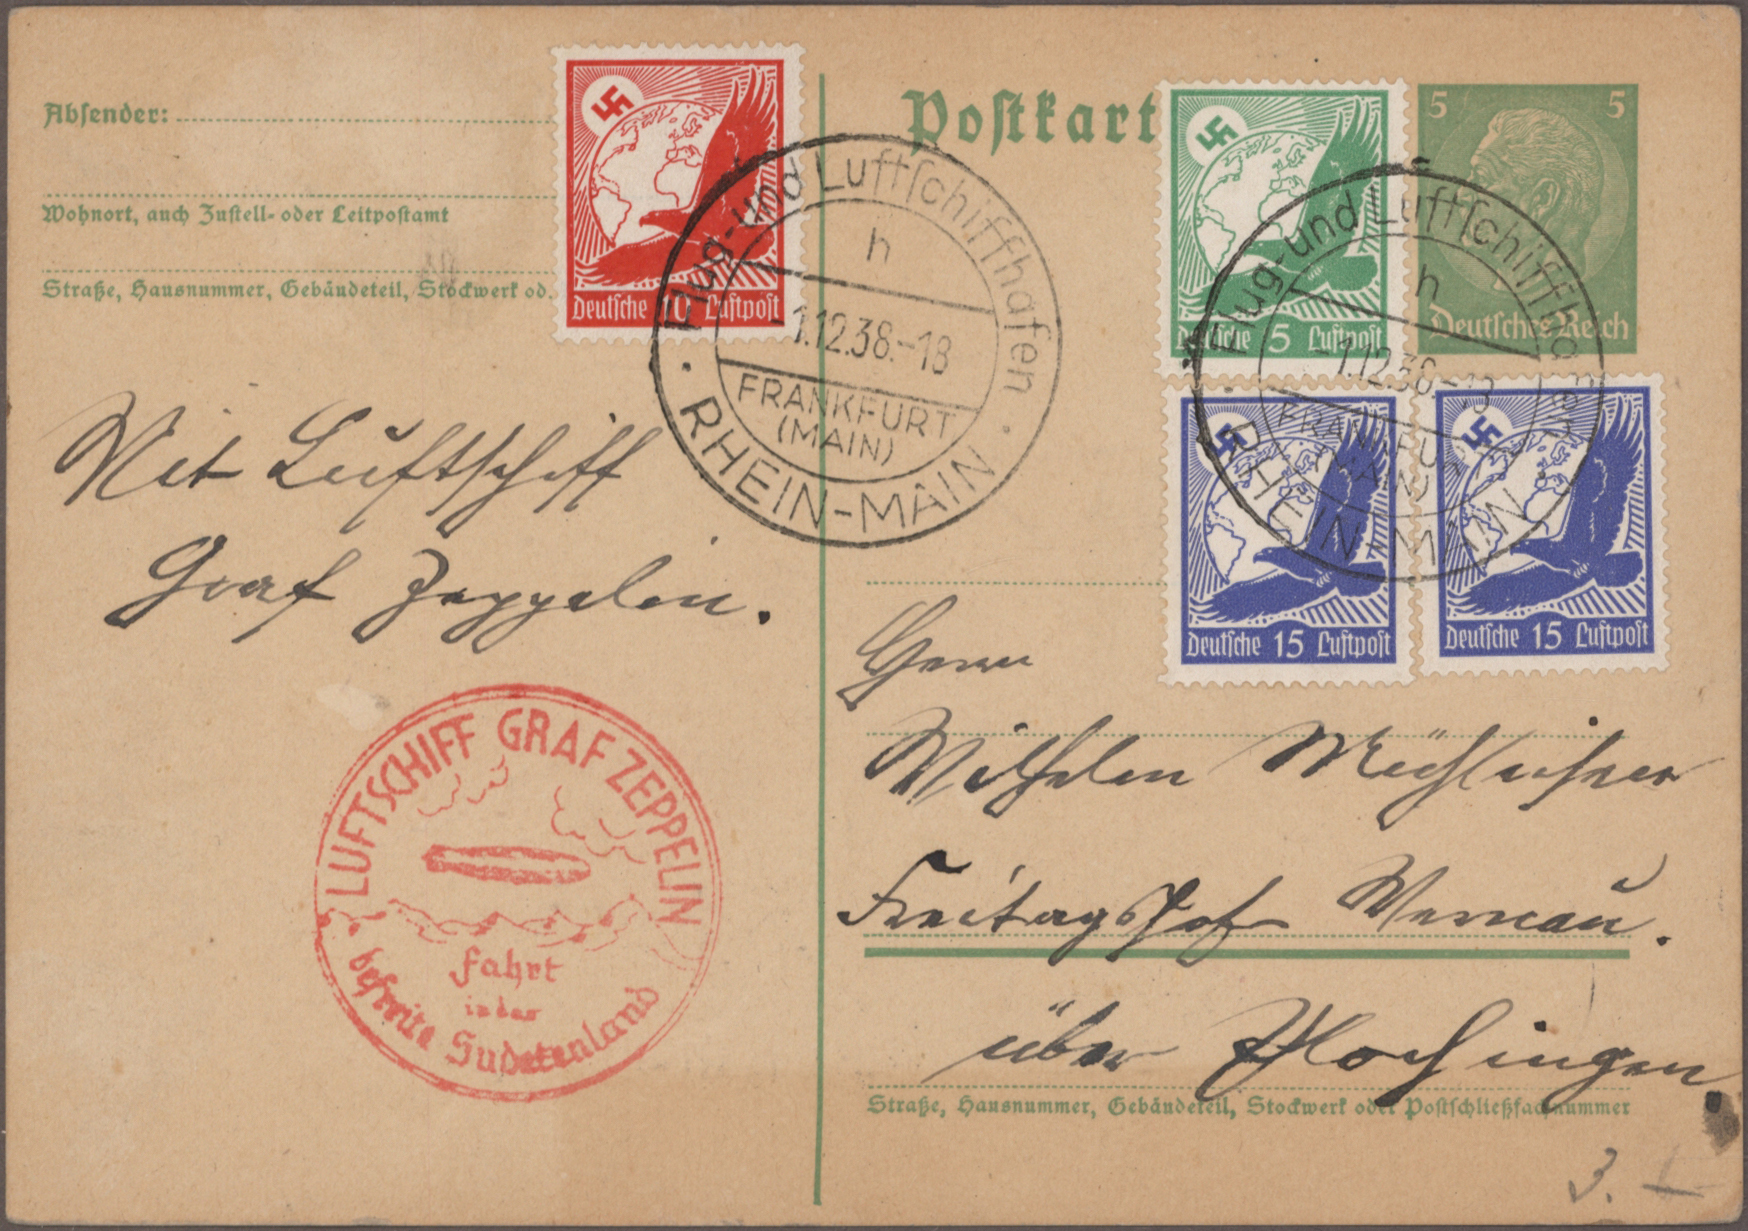 Absender:
Wohnort, auch Zustell- oder Leitpostamt
Straße, Hausnummer, Gebäudeteil, Stockwerk od.
Deutsche 10 Luftpost
Postkart
Deutsche 5 Luftpost
5 5
Deutsches Reich
Deutsche 15 Luftpost
Deutsche 15 Luftpost
Flug- und Luftschiffhafen
h
-1.12.38.-18
FRANKFURT
(MAIN)
RHEIN-MAIN
Flug- und Luftschiffhafen
h
-1.12.38.-18
FRANKFURT
(MAIN)
RHEIN-MAIN
Mit Luftschiff
Graf Zeppelin.
LUFTSCHIFF GRAF ZEPPELIN
Fahrt
in das
befreite Sudetenland
Herrn
Wilhelm
Freitagshof Wernau.
über Plochingen.
Straße, Hausnummer, Gebäudeteil, Stockwerk oder Postschließfachnummer
3.